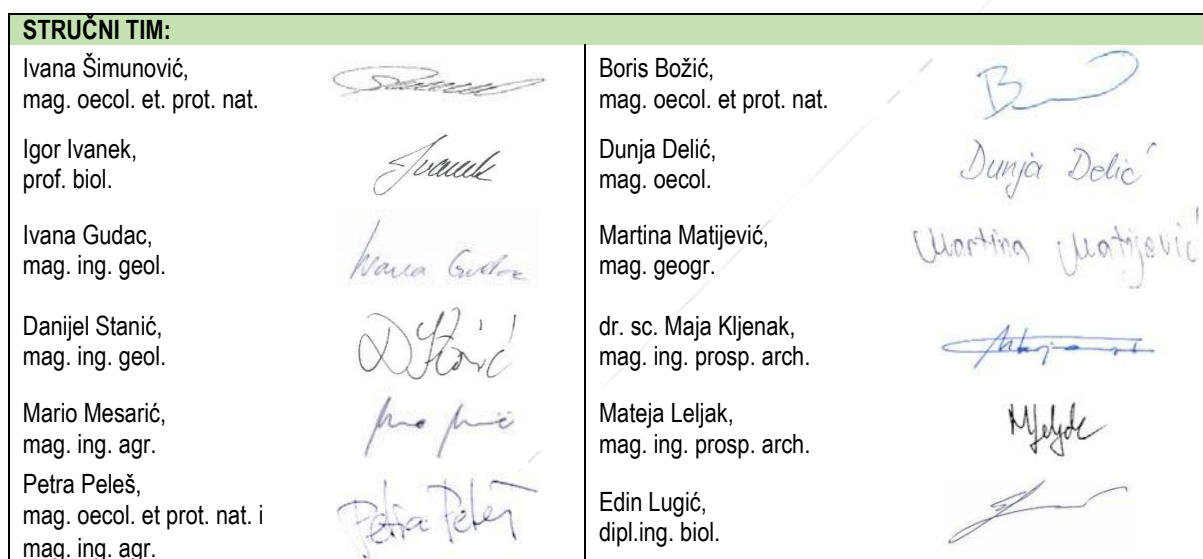 STRUČNI TIM:
Ivana Šimunović,
mag. oecol. et. prot. nat.
Igor Ivanek,
prof. biol.
Ivanek
Ivana Gudac,
mag. ing. geol.
Ivana Gudac
Danijel Stanić,
mag. ing. geol.
D Stanić
Mario Mesarić,
mag. ing. agr.
Petra Peleš,
mag. oecol. et prot. nat. i
mag. ing. agr.
Petra Peleš
Boris Božić,
mag. oecol. et prot. nat.
Dunja Delić,
mag. oecol.
Dunja Delić
Martina Matijević,
mag. geogr.
Martina Matijević
dr. sc. Maja Kljenak,
mag. ing. prosp. arch.
Mateja Leljak,
mag. ing. prosp. arch.
MLeljak
Edin Lugić,
dipl.ing. biol.